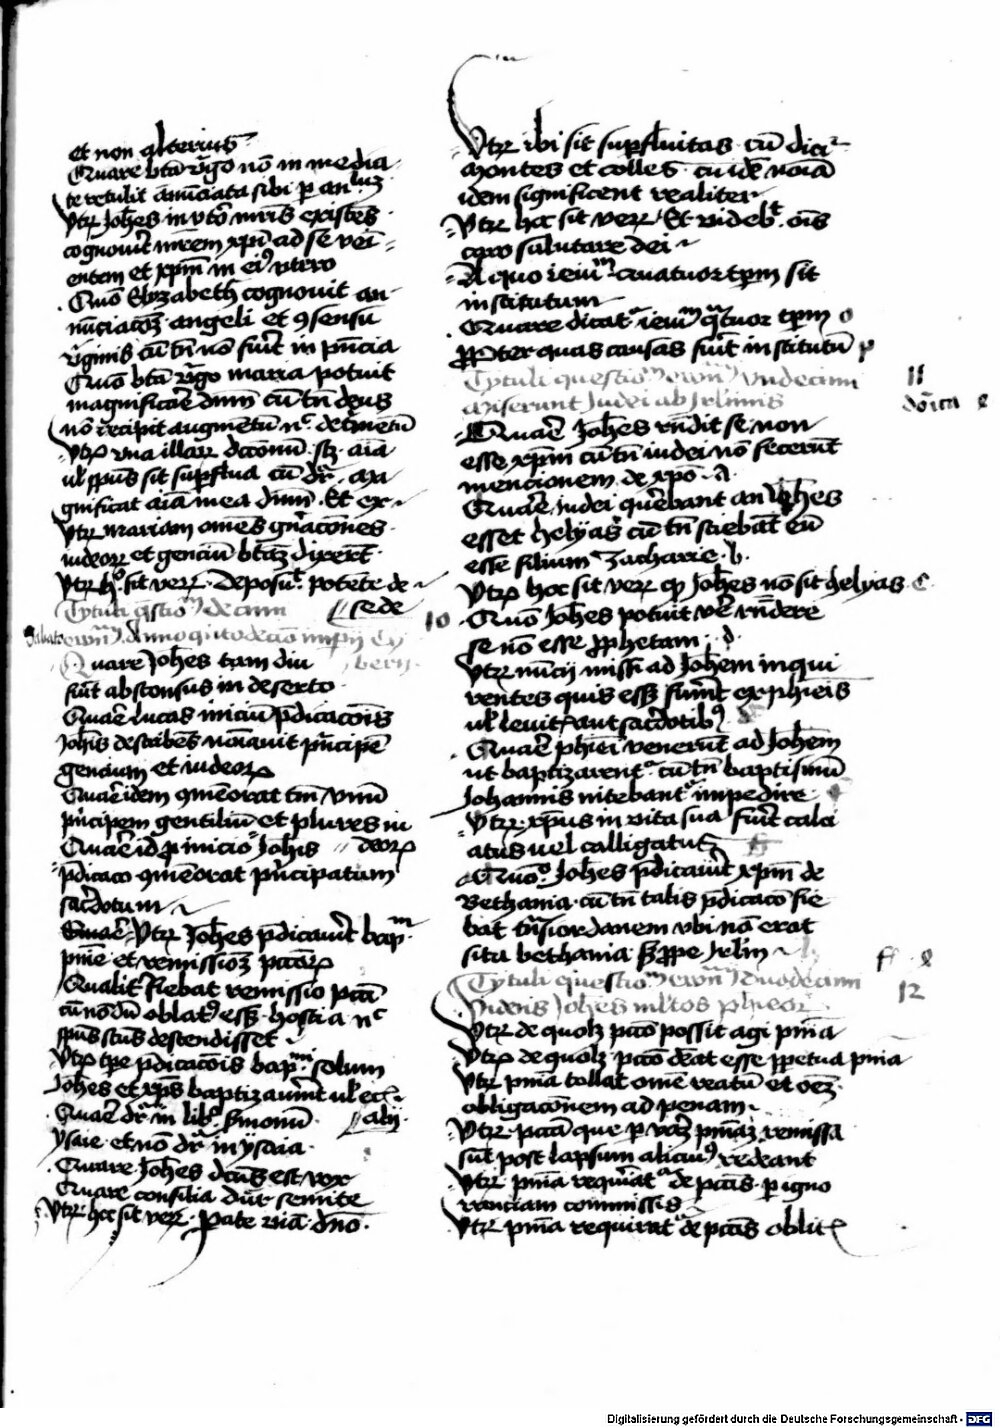 et non alterius
Quare bta v̾go nō in media
te retulit annūciata sibi p an
Vtrꝝ Joh̄es in vtō mr̄is existēs
cognouit mr̄em xp̄i ad se vei
entem et xp̄m in eiꝰ vtero
Quō Elyzabeth cognouit an
nūciacōꝫ angeli et ꝯsensū
v̾ginis cū tn̄ nō fuit in pn̄cia
Quō bta v̾go maria potuit
magnificare dnm̄ cū tn̄ deus
nō recipit augmētū nᶜ det̾mētū
Vtrꝝ vna illarꝝ dictionū .scꝫ. aīa
ul sp̄us sit supflua cū dr̄ . ma
gnificat aīa mea dnm̄ . Et ex
Vtrꝝ mariam omēs gn̄acōnes
iudeorꝝ et genciū btāꝫ dixerūt
Vtrꝝ hᵒ sit verꝝ . Deposuit potētes de
Tytuli qstionū decimi sede
Anno qͥtodecīo impij Ty
Quare Joh̄es tam diu berij
fuit absconsus in deserto
Quare lucas iniciū p̄dicacōis
Joh̄is describēs noīauit p̾ncipē
gencium et iudeorꝝ
Quare idem ꝯmēorat tm̄ vnū
p̾ncipem gentiliū et plures iu
Quare id p inicio Joh̄is deorꝝ
p̄dicacō ꝯmēorat p̾ncipatum
sac̾dotum
Quare Vtrꝝ Joh̄es p̄dicauit bap̄m
pn̄ie et remissioēꝫ pccōrꝝ
Qualit̾ fiebat remissio pccī
cū nōdū oblatꝰ esset hostia nᶜ
sp̄us scūs descendisset
Vtrꝝ tpe p̄dicacōis bapmi solum
Joh̄es et xp̄s baptizauit ul eciā
Quare dr̄ in libᵒ s̾monū alij
ysaie et nō dr̄ in ysaia
Quare Joh̄es dcūs est vox
Quare consilia dūr semite
Vtrꝝ hoc sit verꝝ . Parate viā dnō
Vtrꝝ ibi sit supfluitas cū dicit̾
montes et colles cū idē noīa
idem significent realiter
Vtrꝝ hoc sit verꝝ . Et videbit oīs
caro salutare dei
A quo ieiuniū quatuor tpm sit
institutum
Quare dicat̾ ieiuniū q̾tuor tpm o
Propter quas causas fuit institutū p
Tytuli questionū ewā Vndecimi 11
Miserunt Judei ab Jrlimis dōica
Quare Joh̄es rn̄dit se non
esse xp̄m cū tn̄ iudei nō fecerūt
mencionem de xpō . A
Quare iudei querebant an Joh̄es
esset helyas cū tn̄ sciebāt eū
esse filium Zacharie . b
Vtrꝝ hoc sit verꝝ qp Joh̄es nō sit helyas c
Quō Joh̄es potuit vere rn̄dere 10
se nō esse pphetam . d
Vtrꝝ nuncij missi ad Joh̄em inqui
rentes quis esset fuerūt ex phīeis
ul leuitꝭ aut sac̾dotibꝰ
Quare phīei venerūt ad Joh̄em
ut baptizarent̾ cū tn̄ baptismū
Johannis nitebant̾ impedire
Vtrꝝ xp̄us in vita sua fuit calci
atus uel calligatus
Quō Joh̄es p̄dicauit xp̄m de
Bethania cū tn̄ talis p̄dicacō fie
bat trās iordanem vbi nō erat
sita bethania sꝫ ppe Jrlm
Tytuli questionū ewā Duodecimi 12
Videns Joh̄es ml̾tos phīeorꝝ
Vtrꝝ de quolꝫ pccō possit agi pn̄ia
Vtrꝝ de quolꝫ pccō deat esse ppetua pn̄ia
Vtrꝝ pn̄ia tollat omē reatū et oēꝫ
obligacōnem ad penam
Vtrꝝ pccā que p vaꝫ pn̄iaꝫ remissa
sūt post lapsum alicuiꝰ redeant
Vtrꝝ pn̄ia requirat̾ de pccīs p igno
ranciam commissis
Vtrꝝ pn̄ia requirat̾ de pccīs oblitꝭ
Digitalisierung gefördert durch die Deutsche Forschungsgemeinschaft - DFG